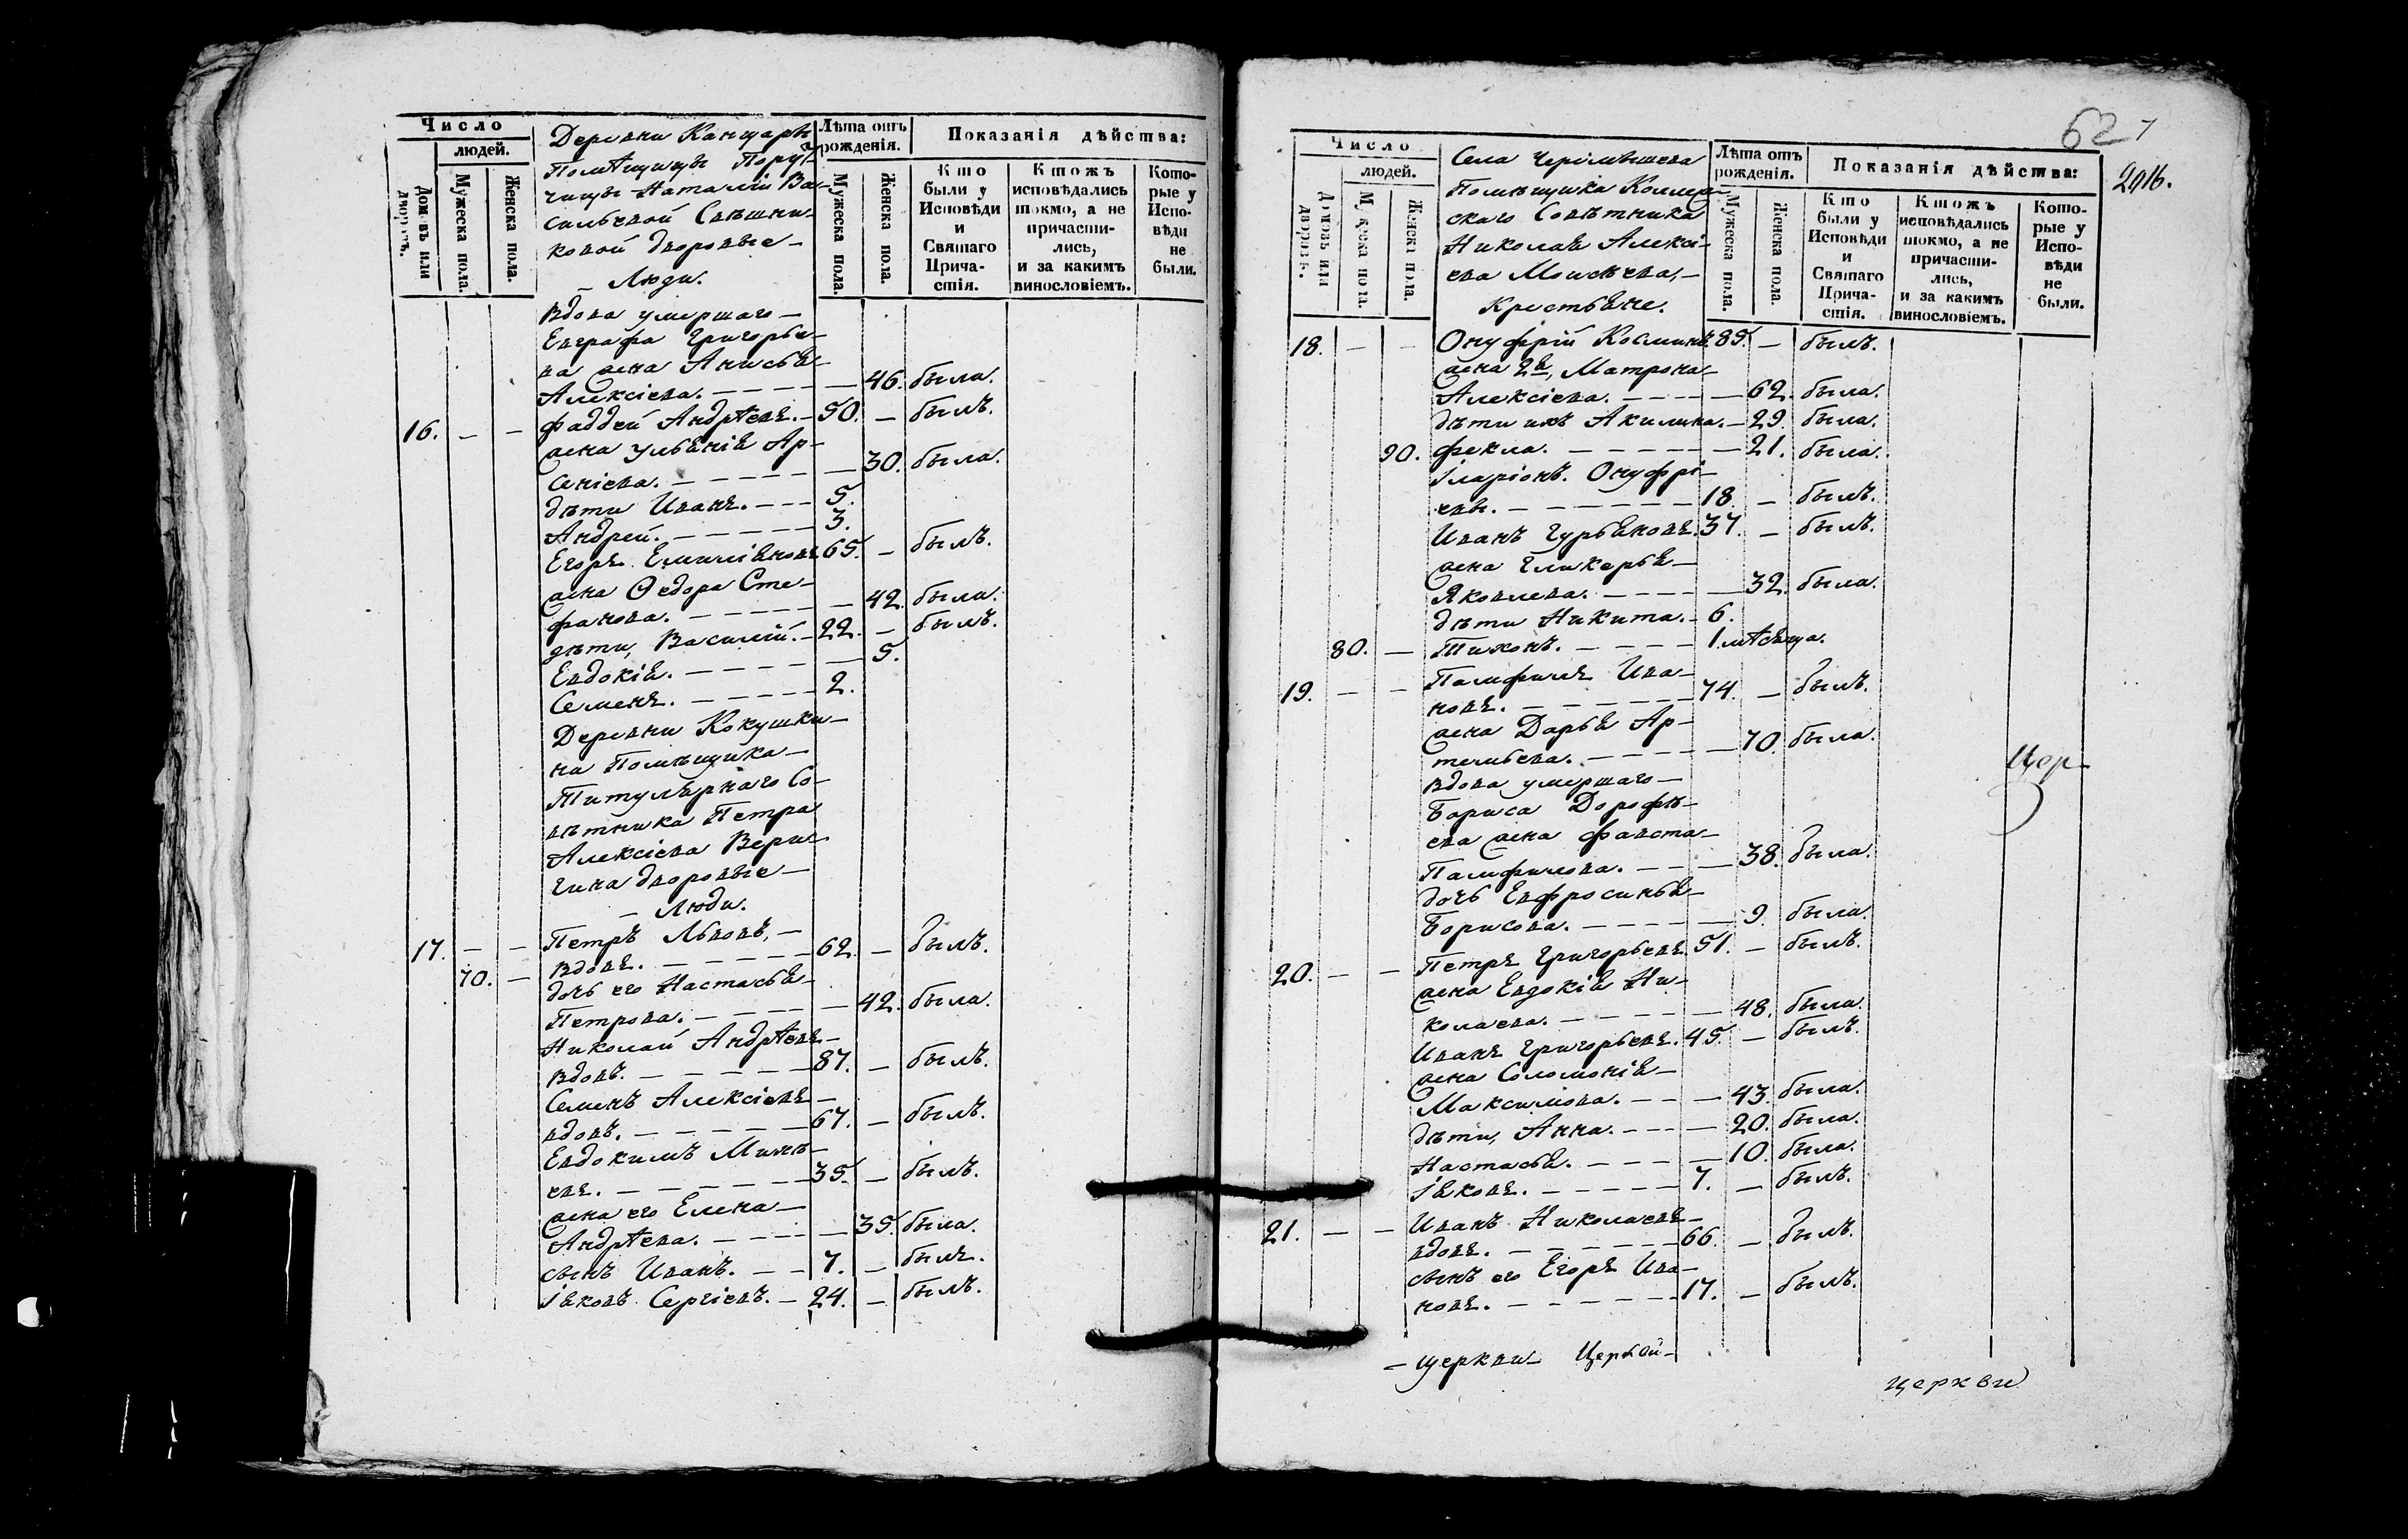 Число
людей.
Домовъ или дворовъ.
Мужеска пола.
Женска пола.
Деревни Канцаръ
Помѣщицы Пору-
чицы Наталіи Ва-
сильевой Свѣшни-
ковой дворовые
Люди.
Лѣта отъ рожденія.
Мужеска пола.
Женска пола.
Показанія дѣйства:
Кто были у Исповѣди и Святаго Прича-стія.
Ктожъ исповѣдались токмо, а не причасти-лись, и за какимъ винословіемъ.
Кото-рые у Испо-вѣди не были.
Вдова умершаго
Евграфа Григорье-
ва жена Анисья
Алексіева. 46. была.
16. Фаддей Андрѣевъ. 50. былъ.
жена Ульянія Ар-
сеніева. 30. была.
дѣти Иванъ. 5.
Андрей. 3.
Егоръ Емиліановъ 65. былъ.
жена Ѳедора Сте-
фанова. 42. была.
дѣти, Василій. 22. былъ.
Евдокія. 5.
Семенъ. 2.
Деревни Кокушки-
на Помѣщика
Титулярнаго Со-
вѣтника Петра
Алексіева Вери-
гина дворовые
Люди.
17. Петръ Львовъ,
70. вдовъ. 62. былъ.
дочь его Настасья
Петрова. 42. была.
Николай Андрѣевъ
вдовъ. 87. былъ.
Семенъ Алексіевъ
вдовъ. 67. былъ.
Евдокимъ Минѣ-
евъ. 35. былъ.
жена его Елена
Андрѣева. 35. была.
сынъ Иванъ. 7. былъ.
Іяковъ Сергіевъ. 24. былъ.
62
2016.
Число
людей.
Домовъ или дворовъ.
Мужеска пола.
Женска пола.
Села Черемышева
Помѣщика Коллеж-
скаго Совѣтника
Николая Алексі-
ева Моисѣева,
Крестьяне.
Лѣта отъ рожденія.
Мужеска пола.
Женска пола.
Показанія дѣйства:
Кто были у Исповѣди и Святаго Прича-стія.
Ктожъ исповѣдались токмо, а не причасти-лись, и за какимъ винословіемъ.
Кото-рые у Испо-вѣди не были.
18. Онуфрій Косминъ 85. былъ.
жена 2я, Матрона
Алексіева. 62. была.
дѣти ихъ Акилина. 29. была.
90. Фекла. 21. была.
Іларіонъ. Онуфрі-
евы. 18. былъ.
Иванъ Гурьяновъ. 37. былъ.
жена Гликерья
Яковлева. 32. была.
дѣти Никита. 6.
80. Тихонъ. 1 мѣсяца.
19. Памфилъ Ива-
новъ. 74. былъ.
жена Дарья Ар-
темьева. 70. была.
вдова умершаго
Бориса Дорофѣ-
ева жена Фавста
Памфилова. 38. была.
дочь Евфросинья
Борисова. 9. была.
20. Петръ Григорьевъ 51. былъ.
жена Евдокія Ни-
колаева. 48. была.
Иванъ Григорьевъ. 45. былъ.
жена Соломонія
Максимова. 43. была.
дѣти, Анна. 20. была.
Настасья. 10. была.
Іяковъ. 7. былъ.
21. Иванъ Николаевъ
вдовъ. 66. былъ.
сынъ его Егоръ Ива-
новъ. 17. былъ.
Цер-
церкви Церкви
церкви